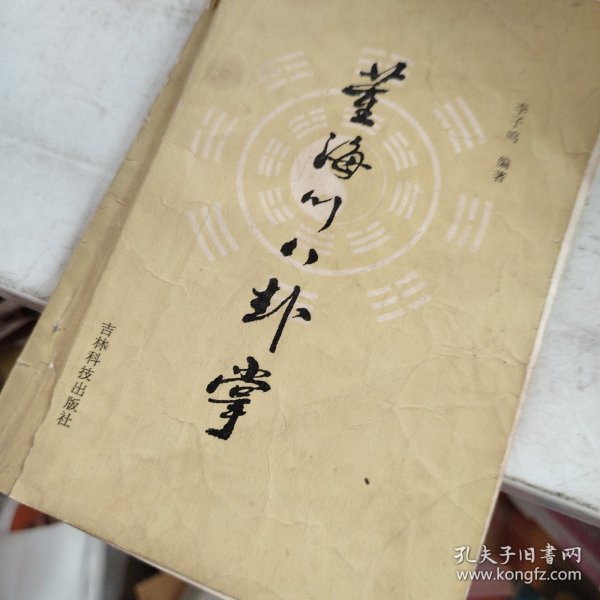 董海川八卦掌
李子鸣 编著
吉林科技出版社
孔夫子旧书网
www.kongfz.com